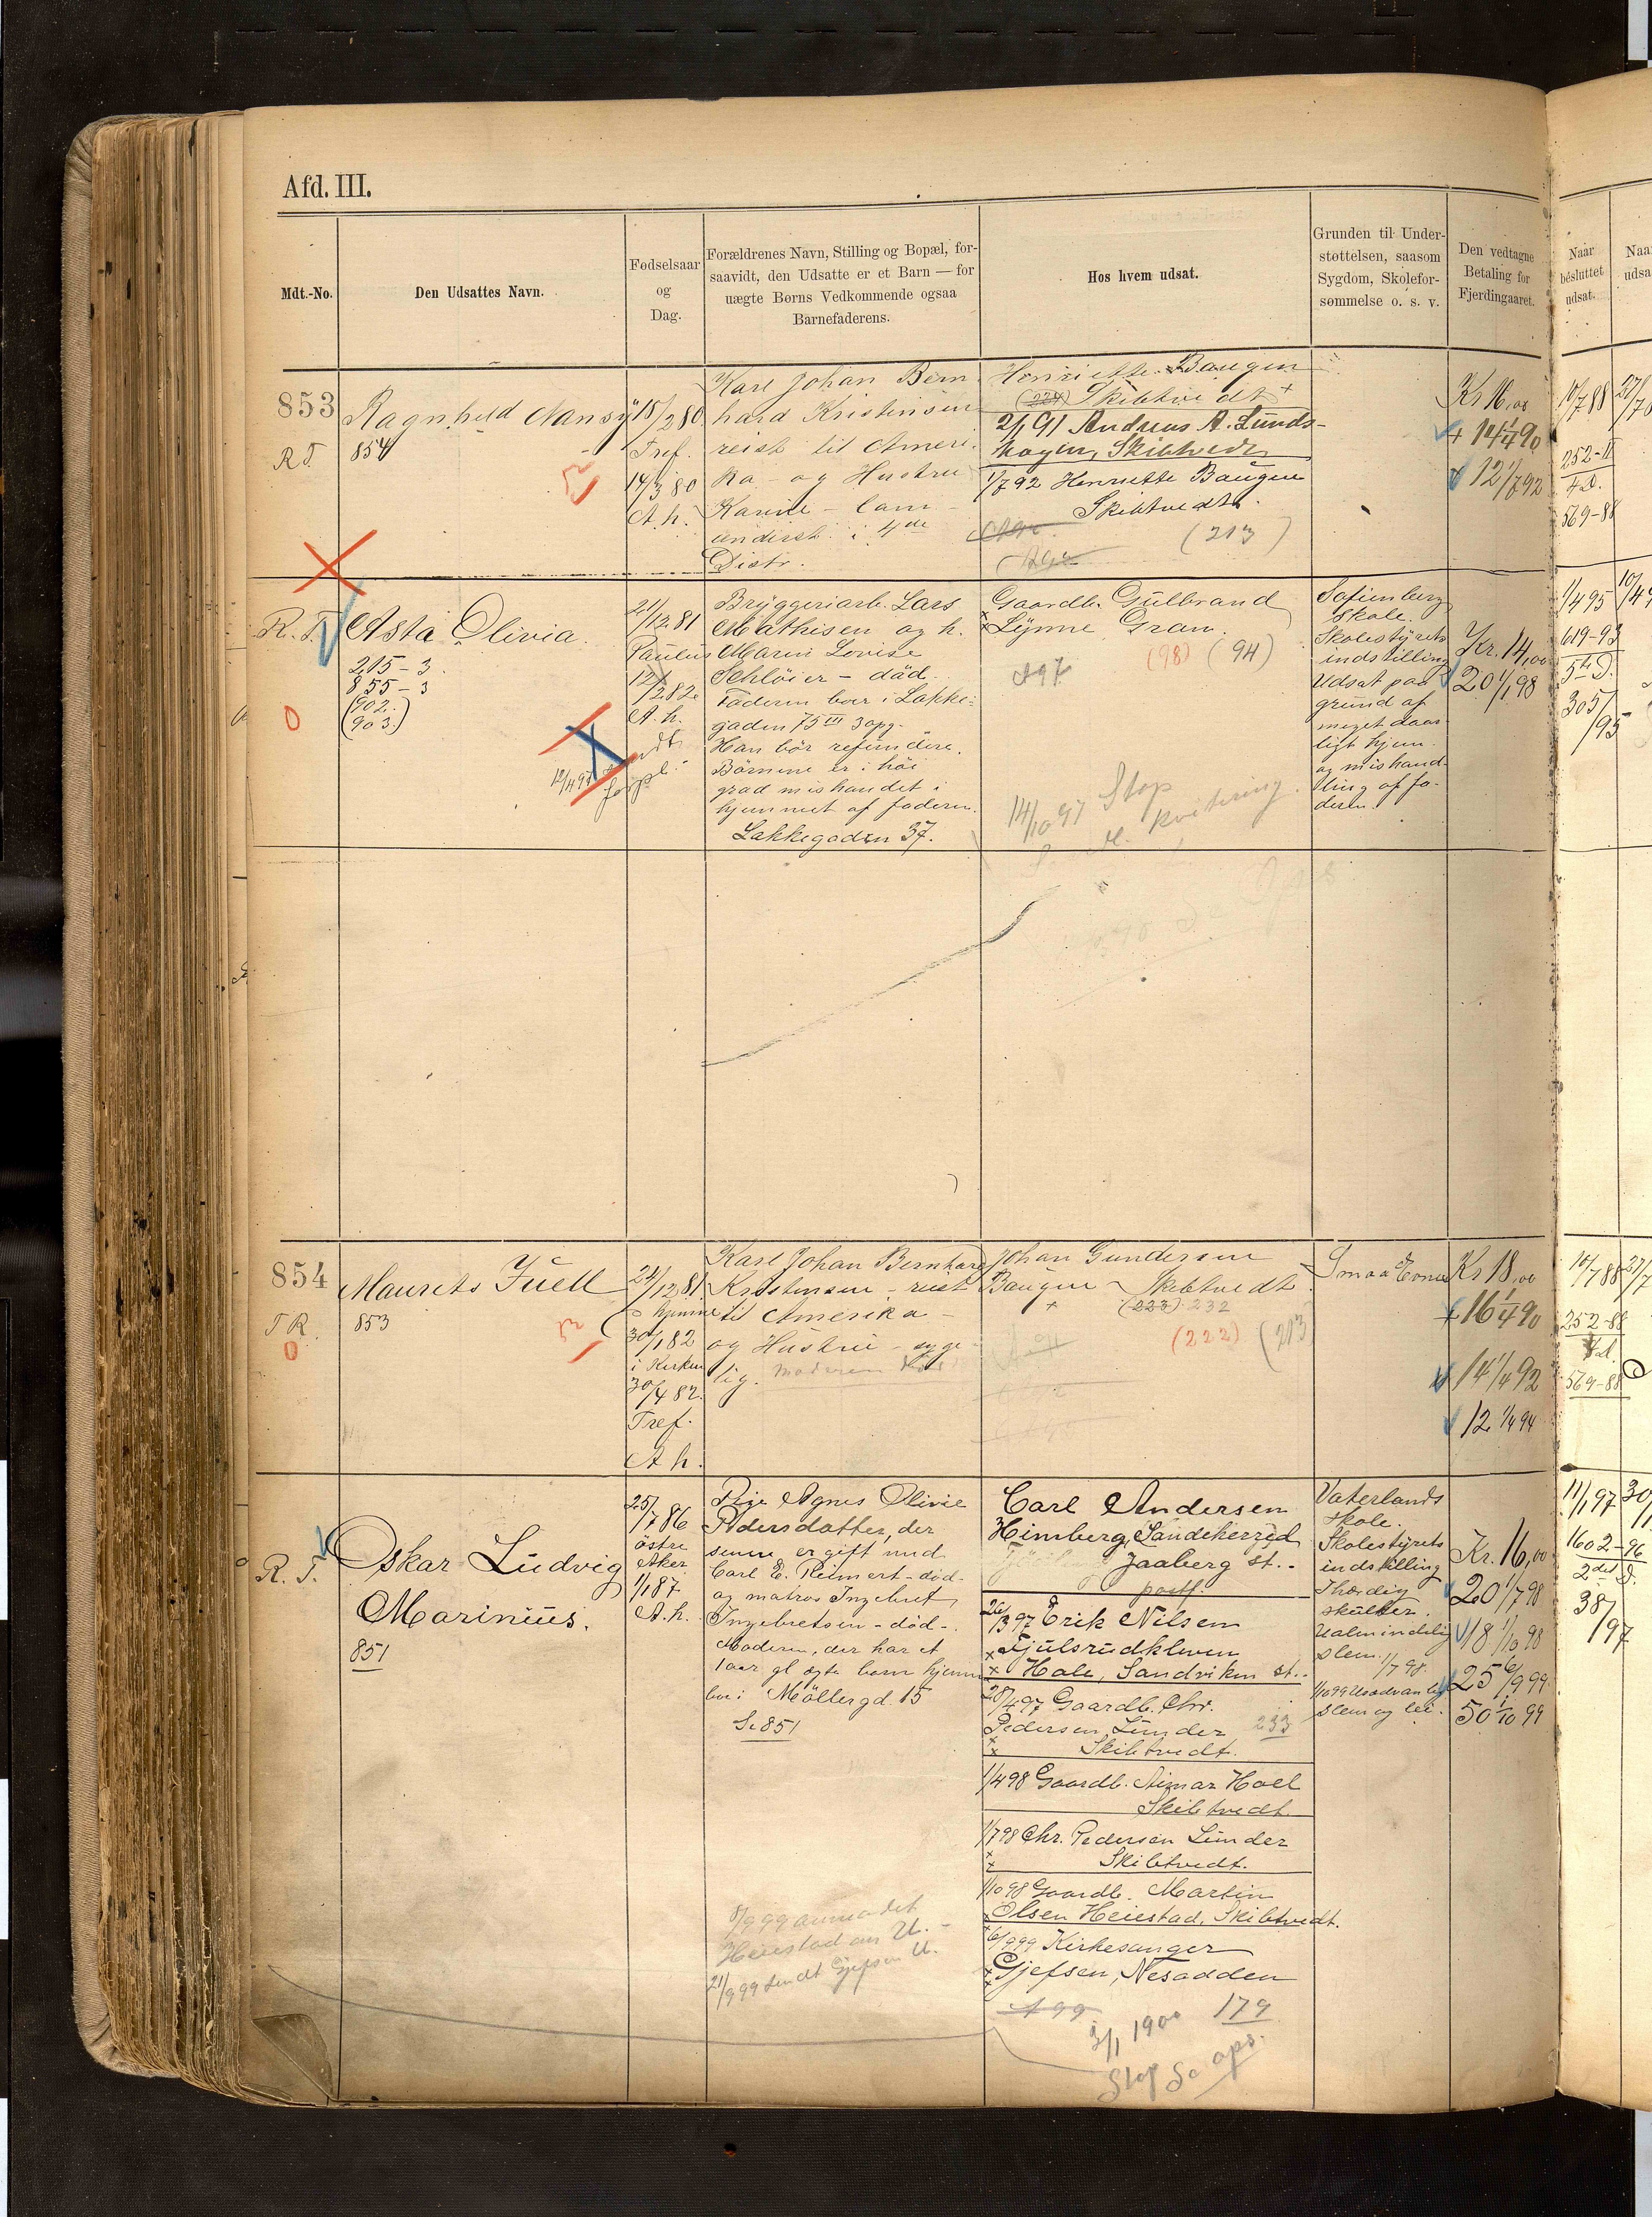 Afd. III.
Mdt.-No.
Den Udsattes Navn.
Fødselsaar
og
Dag.
Forældrenes Navn, Stilling og Bopæl, for-
saavidt, den Udsatte er et Barn — for
uægte Børns Vedkommende ogsaa
Barnefaderens.
Hos hvem udsat.
Grunden til Under-
støttelsen, saasom
Sygdom, Skolefor-
sømmelse o. s. v.
Den vedtagne
Betaling for
Fjerdingaaret.
Naar
besluttet
udsat.
Naa
udsa
853
R T.
Ragnhild Nansy
854
18/2 80
Tref.
14/3 80
A. h.
Karl Johan Bern
hard Kristensen
reist til Ameri
ka - og Hustru
Karine -
i 4de
Distr.
Henriette Baugen
Skibtvedt +
2/1 91 Andreas A. Lunds-
haugen, Skibtvedt
1/7 92 Henriette Baugen
Skibtvedt.
(213)
Kr 16,00
+ 14 1/4 90
12 1/7 92
10/7 88
252-II
4 D.
569-88
R. T.
Asta Olivia.
215-3
855-3
(902.)
(903.)
21/12 81
Paulus
12/2 82
A. h.
Bryggeriarb. Lars
Mathisen og h.
Maren Lovise
Schlöier - död.
Faderen boer i Lakke-
gaden 75 III opg.
Han bör refundere.
Börnene er i höi
grad mishandlet i
hjemmet af faderen.
Lakkegaden 37.
Gaardb. Gulbrand
Lynne, Gran.
(98) (94)
14/10 97 Stop
kvitering.
Sofienberg
skole.
Skolestyrets
indstilling
Udsat paa
grund af
meget daar-
ligt hjem
og mishand-
ling af fa-
deren.
Kr. 14,00
20 1/1 98
1/4 95
619-93
5te D.
305/95
854
T R.
0
Maurits Juell
853
24/12 81.
hjemme
30/1 82
i Kirken
30/4 82.
Tref.
A h.
Karl Johan Bernhard
Kristensen - reist
til Amerika -
og Hustru - syge
lig. Moderen död
Johan Gundersen
Baugen - Skibtvedt
(223) 232
(222) (213
Kr 18,00
+ 16 1/4 90
14 1/4 92
12 1/4 94
10/7 88
252-88
4 d.
569-88
R. T.
Oskar Ludvig
Marinius.
851
25/7 86
östre
Aker
1/1 87.
A. h.
Pige Agnes Olivie
Pedersdatter, der
senere er gift med
Carl E. Reinert - död.
og matros Ingebret
Ingebretsen - död -.
Moderen, der har et
1 aar gl ægte barn hjemme
bor i Möllergd. 15
Se 851
8/9 99 anmodet
Heiestad om U. -
21/9 99 sendt Gjefsen U.
Carl Andersen
Himberg, Sandeherred
Jaaberg st. -
post
26/3 97 Erik Nilsen
Fjulsrudkleven
Hole, Sandviken st..
28/4 97 Gaardb. Chr.
Pedersen Lunder 233
Skibtvedt.
1/4 98 Gaardb. Aimar Hoel
Skibtvedt.
1/7 98 Chr. Pedersen Lunder
Skibtvedt.
1/10 98 Gaardb. Martin
Olsen Heiestad, Skibtvedt.
6/9 99 Kirkesanger
Gjefsen, Nesodden
A 99 179
3/1 1900
Stop Se ops.
Vaterlands
skole.
Skolestyrets
indstilling
Ihærdig
skulker.
Ualmindelig
slem. 1/7 98.
1/10 99 Usedvanlig
slem og lei.
Kr. 16,00
20 1/7 98
18 1/10 98
25 6/9 99
50 1/10 99
11/1 97
1602-96
2det D.
38/97